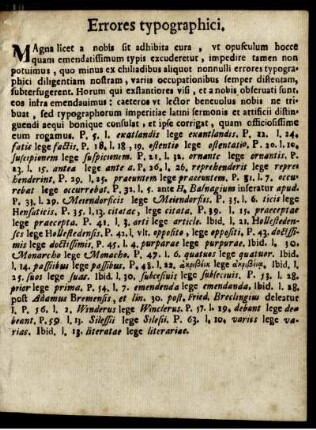 Errores typographici.
MAgna licet a nobis sit adhibita cura, vt opusculum hocce
quam emendatissimum typis excuderetur, impedire tamen non
potuimus, quo minus ex chiliadibus aliquot nonnulli errores typogra-
phici diligentiam nostram, variis occupationibus semper distentam,
subterfugerent. Horum qui exstantiores visi, et a nobis obseruati sunt,
eos infra emendauimus: caeteros vt lector beneuolus nobis ne tri-
buat, sed typographorum imperitiae latini sermonis et artificii distin-
guendi aequi bonique consulat, et ipse corrigat, quam officiosissime
eum rogamus. P. 5, l. exatlandis lege exantlandis. P. 12. l. 24,
fatis lege factis. P. 18, l. 18, 19. ostentio lege ostentatio. P. 20. l. 10,
suscipionem lege suspicionem. P. 21, l. 32. ornante lege ornantis. P.
23, l. 15. antea lege ante a. P. 26, l. 26, reprehenderit lege repre
henderint, P. 29, l. 25. praeuntem lege praeeuntem. P. 31. l. 7. occu-
rebat lege occurrebat. P. 32, l. 5. ante H, Basnagium inseratur apud.
P. 33, l. 29. Meiendorficis lege Meiendorfiis. P. 35, l. 6. ticis lege
Hensaticis. P. 35, l. 13. citatae, lege citata, P. 39. l. 15. praeceptae
lege praecepta. P. 41, l. 3, arti lege article. Ibid, l. 21. Hollestedens-
ses lege Hollestedensis. P. 42, l, vlt. opposite, lege oppositi, P. 43, doctis-
mis lege doctissimis, P. 45, l. 4, purparae lege purpurae, Ibid, l, 30.
Monarcho lege Monacho. P. 47. l. 6. quatues lege quatuor. Ibid.
l. 14, passibus lege passibus, P. 48. l. 22. lege Ibid, l,
25. suos lege suas. Ibid, l. 30. subcesiuis lege subsecuis, P. 51. l. 28,
prior lege prima. P. 54, l. 7. emendenda lege emendanda, Ibid, l. 28,
post Adamus Bremensis, et lin. 30. post, Fried, Breclingius deleatur
I, P. 56, l, 2, Winderus lege Winclerus. P. 57. l. 29, debant lege de-
beant, P. 59. l. 13. Silessii lege Silesii. P. 63. l, 10, varius lege va-
rias. Ibid, l. 13. literatae lege literariae.